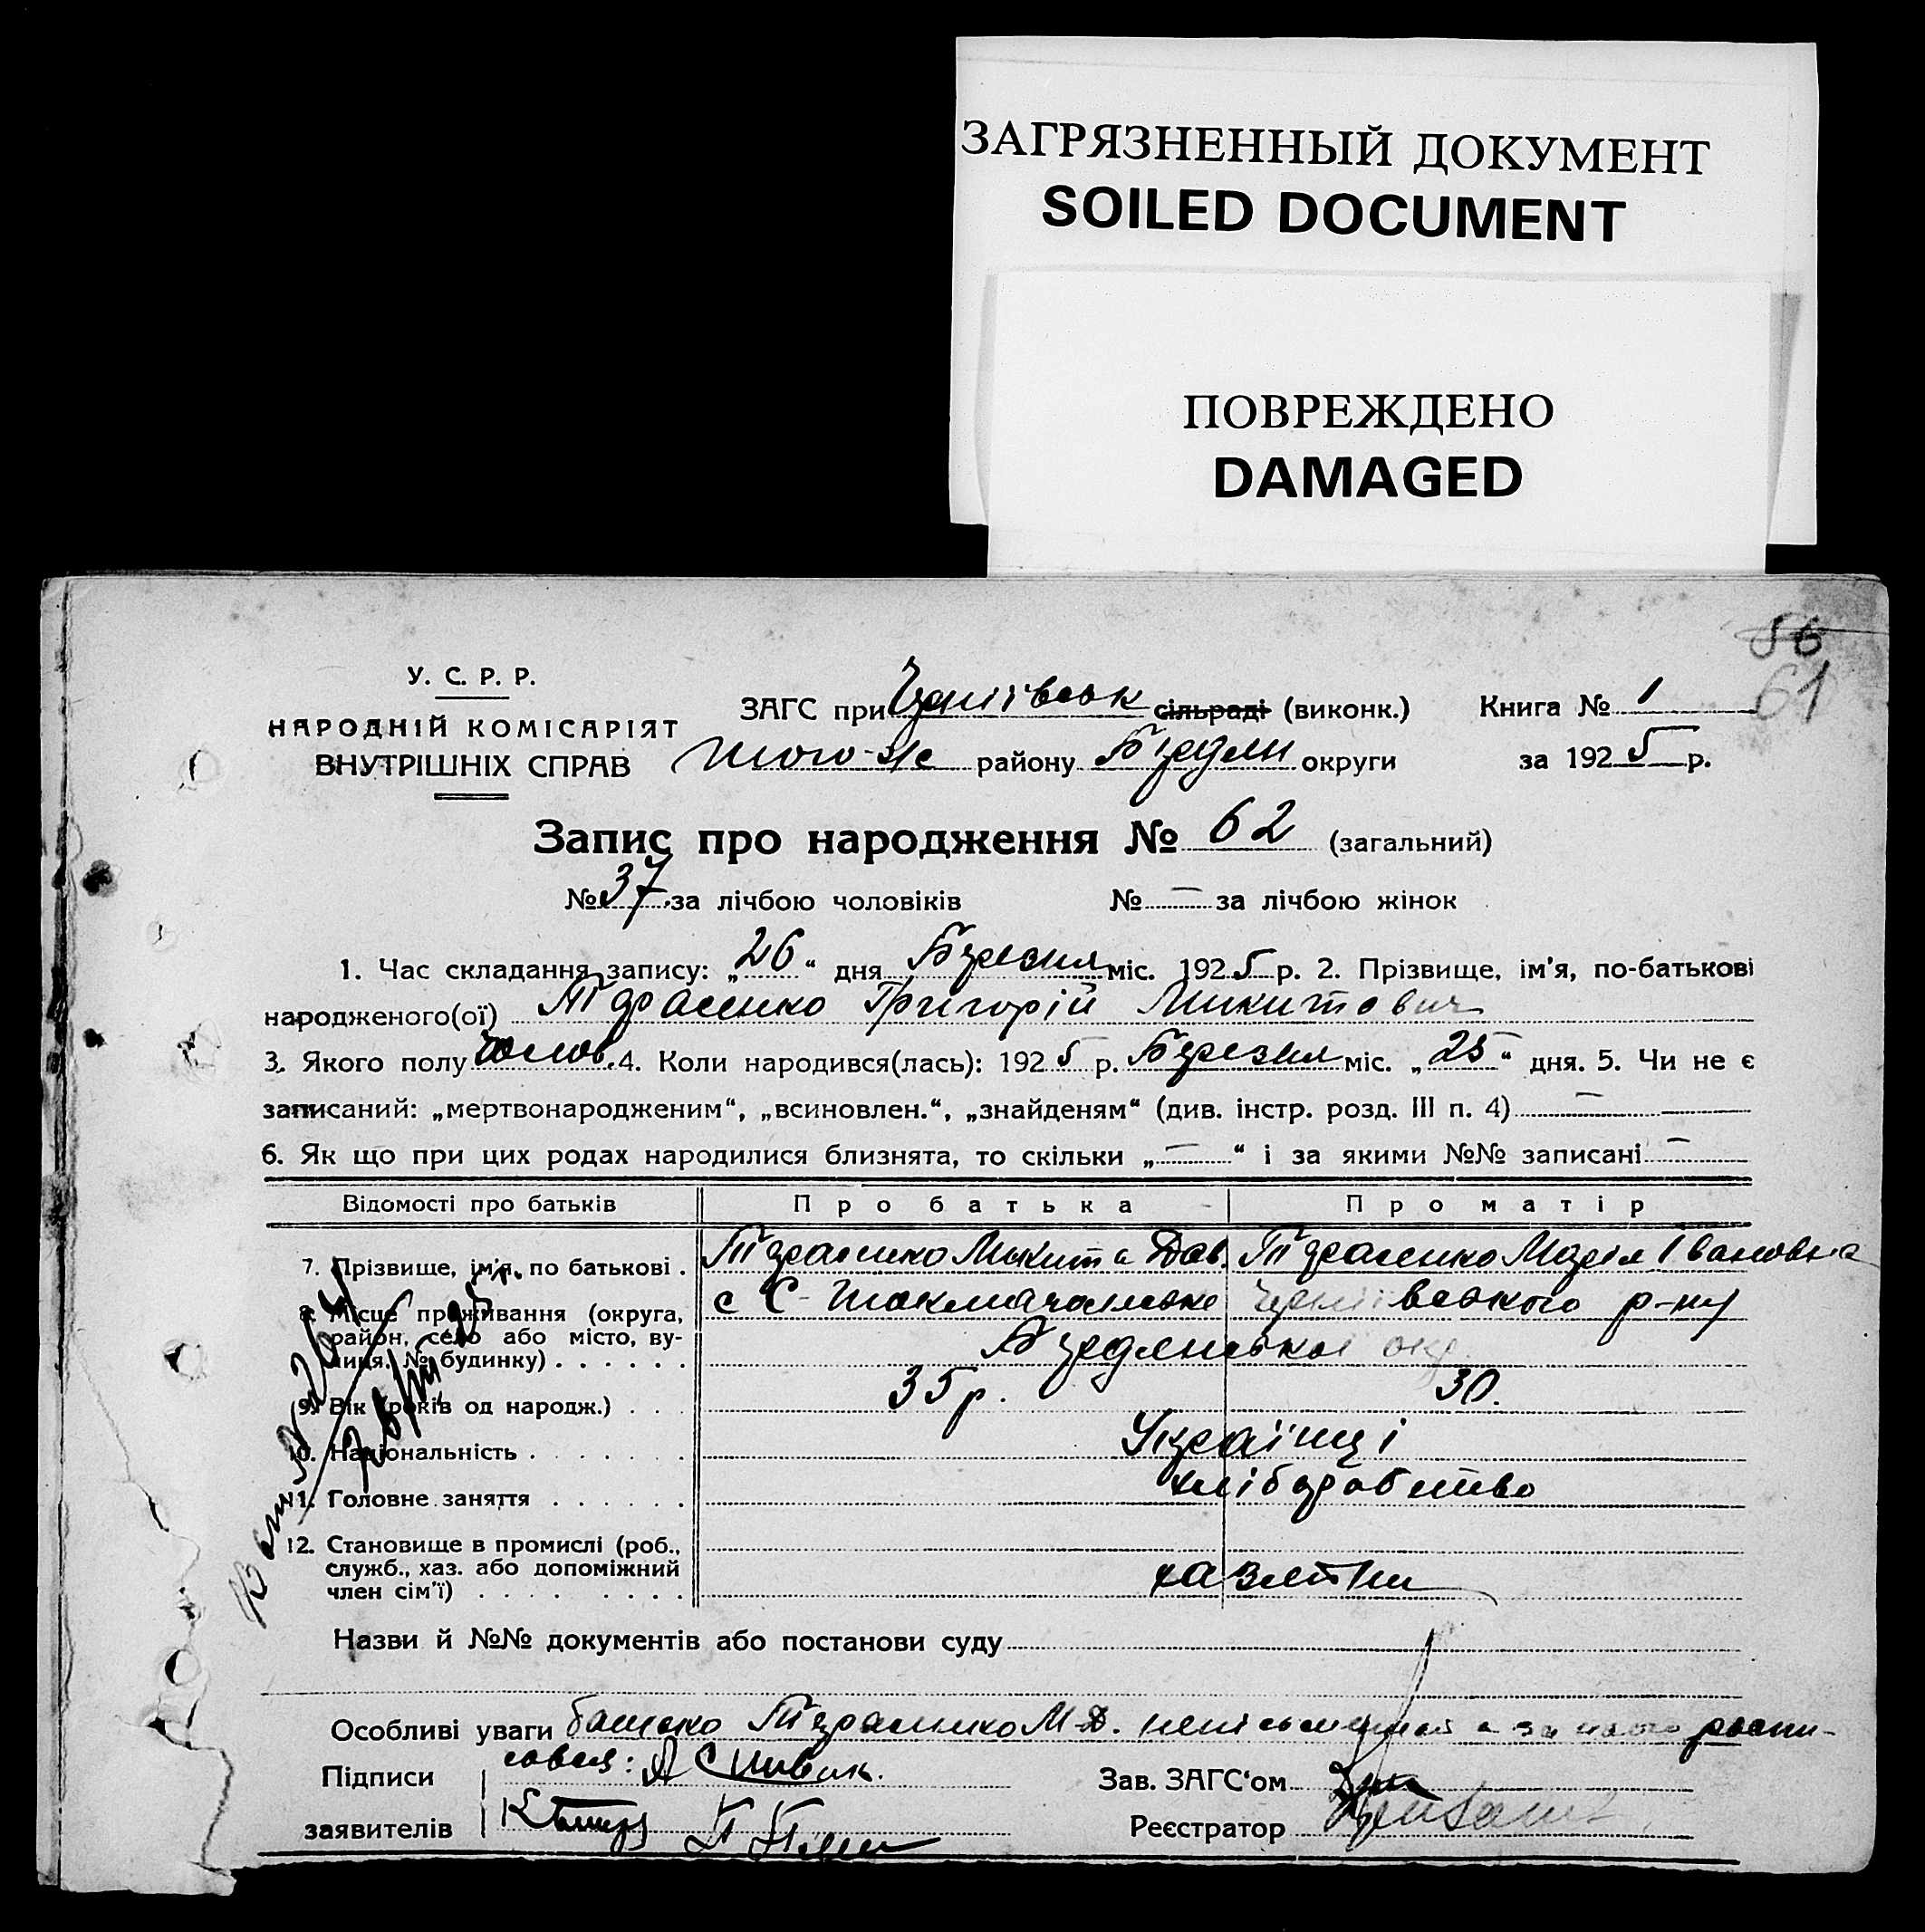 ЗАГРЯЗНЕННЫЙ ДОКУМЕНТ
SOILED DOCUMENT
ПОВРЕЖДЕНО
DAMAGED
56
61
У. С. Р. Р.
НАРОДНІЙ КОМІСАРІЯТ
ВНУТРІШНІХ СПРАВ
ЗАГС при сільраді (виконк.) Книга № 1
того-же району Бердян округи за 1925 р.
Запис про народження № 62 (загальний)
№ 37 за лічбою чоловіків № — за лічбою жінок
1. Час складання запису: „26“ дня Березня міс. 1925 р. 2. Прізвище, ім'я, по-батькові
народженого(ої) Тарасенко Григорій Микитович
3. Якого полу чолов. 4. Коли народився(лась): 1925 р. Березня міс. „25“ дня. 5. Чи не є
записаний: „мертвонародженим“, „всиновлен.“, „знайденям“ (див. інстр. розд. III п. 4) —
6. Як що при цих родах народилися близнята, то скільки „—“ і за якими №№ записані —
Відомості про батьків Про батька Про матір
7. Прізвище, ім'я, по батькові . Тарасенко Микита Дав. Тарасенко Марія Івановна
8. Місце проживання (округа, район, село або місто, вулиця, № будинку) . . . . . . с С-Токмачанське р-ну
Бердянської окр.
9. Вік (років од народж.) . . . 35 р. 30.
10. Національність . . . . . . . Українці
11. Головне заняття . . . . . . хліборобство
12. Становище в промислі (роб.,
служб., хаз. або допоміжний
член сім'ї) . . . . . . . . .
Назви й №№ документів або постанови суду
Особливі уваги батько Тарасенко М-Д. неписьменний а за нього роспи-
Підписи сався: А Співак.
Зав. ЗАГС'ом
заявителів
Реєстратор